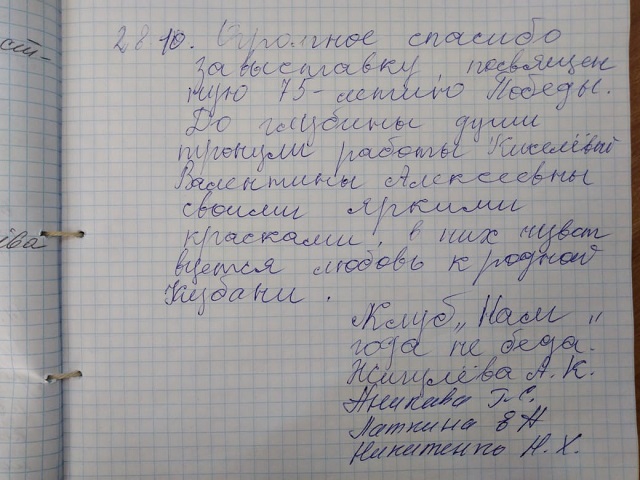 28.10. Огромное спасибо
за выставку, посвящен
ную 75-летию Победы.
До глубины души
тронули работы Киселёвой
Валентины Алексеевны
своими яркими
красками, в них чувст
вуется любовь к родной
Кубани.
Клуб „Нам
года не беда.
Жигулёва А. К.
Г. С.
Латкина
Никитенко Н. Х.